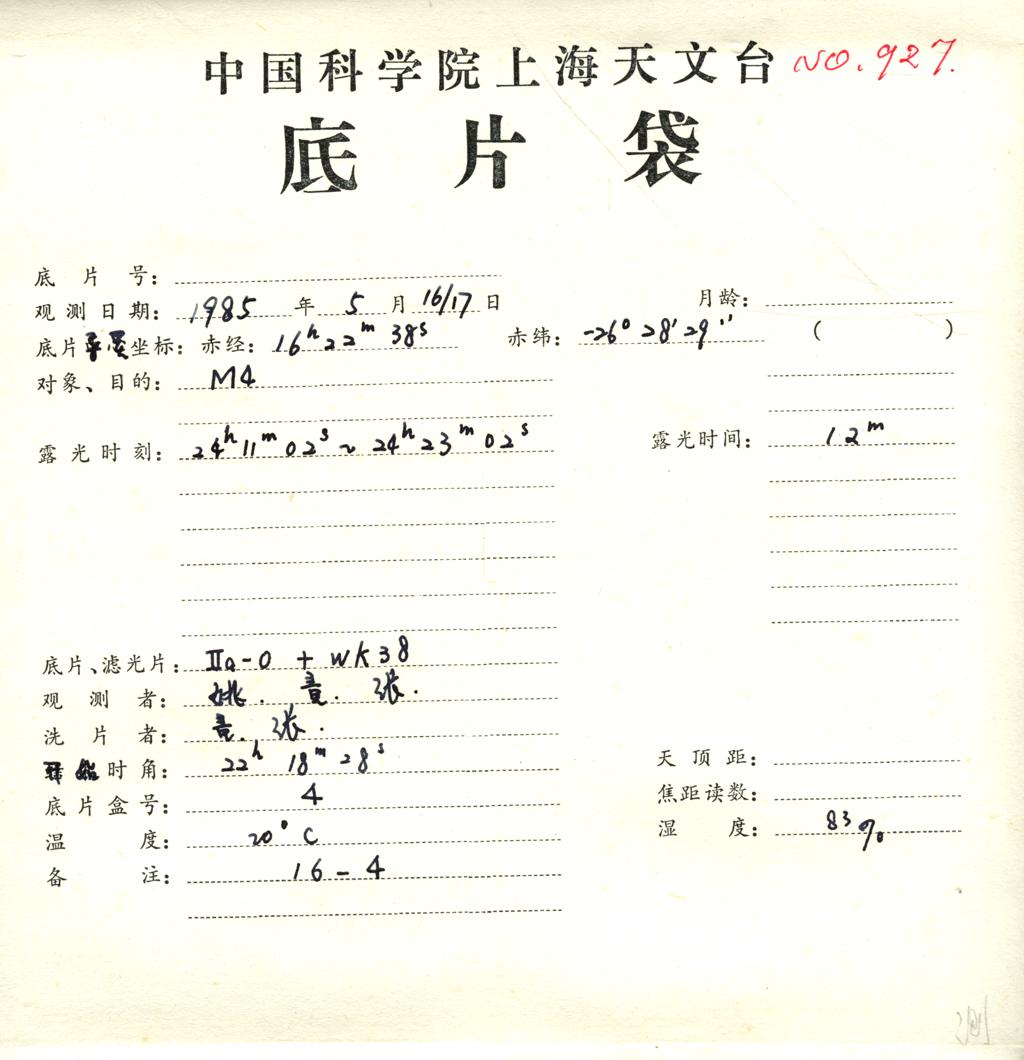 中国科学院上海天文台 NO.927.
底片袋
底片号：
观测日期：1985年5月16/17日 月龄：
底片坐标：赤经：16h22m38s 赤纬：-26°28′29″ ( )
对象、目的：M4
露光时刻：24h11m02s~24h23m02s 露光时间：12m
底片、滤光片：IIa-O + WK38
观测者：姚. 张.
洗片者：张.
时角：22h18m28s 天顶距：
底片盒号：4 焦距读数：
温度：20°C 湿度：83%
备注：16-4